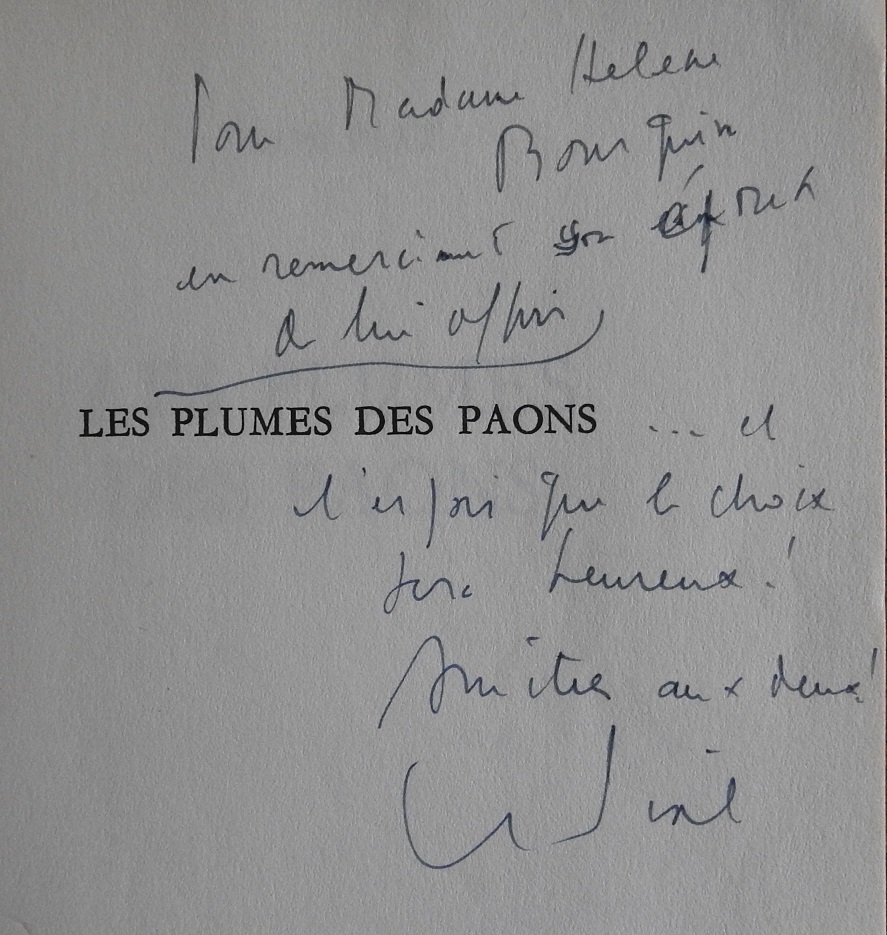 Pour Madame Helene
Bourquin
en remerciant son époux
de lui offrir
LES PLUMES DES PAONS ... et
l'espoir que le choix
sera heureux !
Amitiés aux deux !